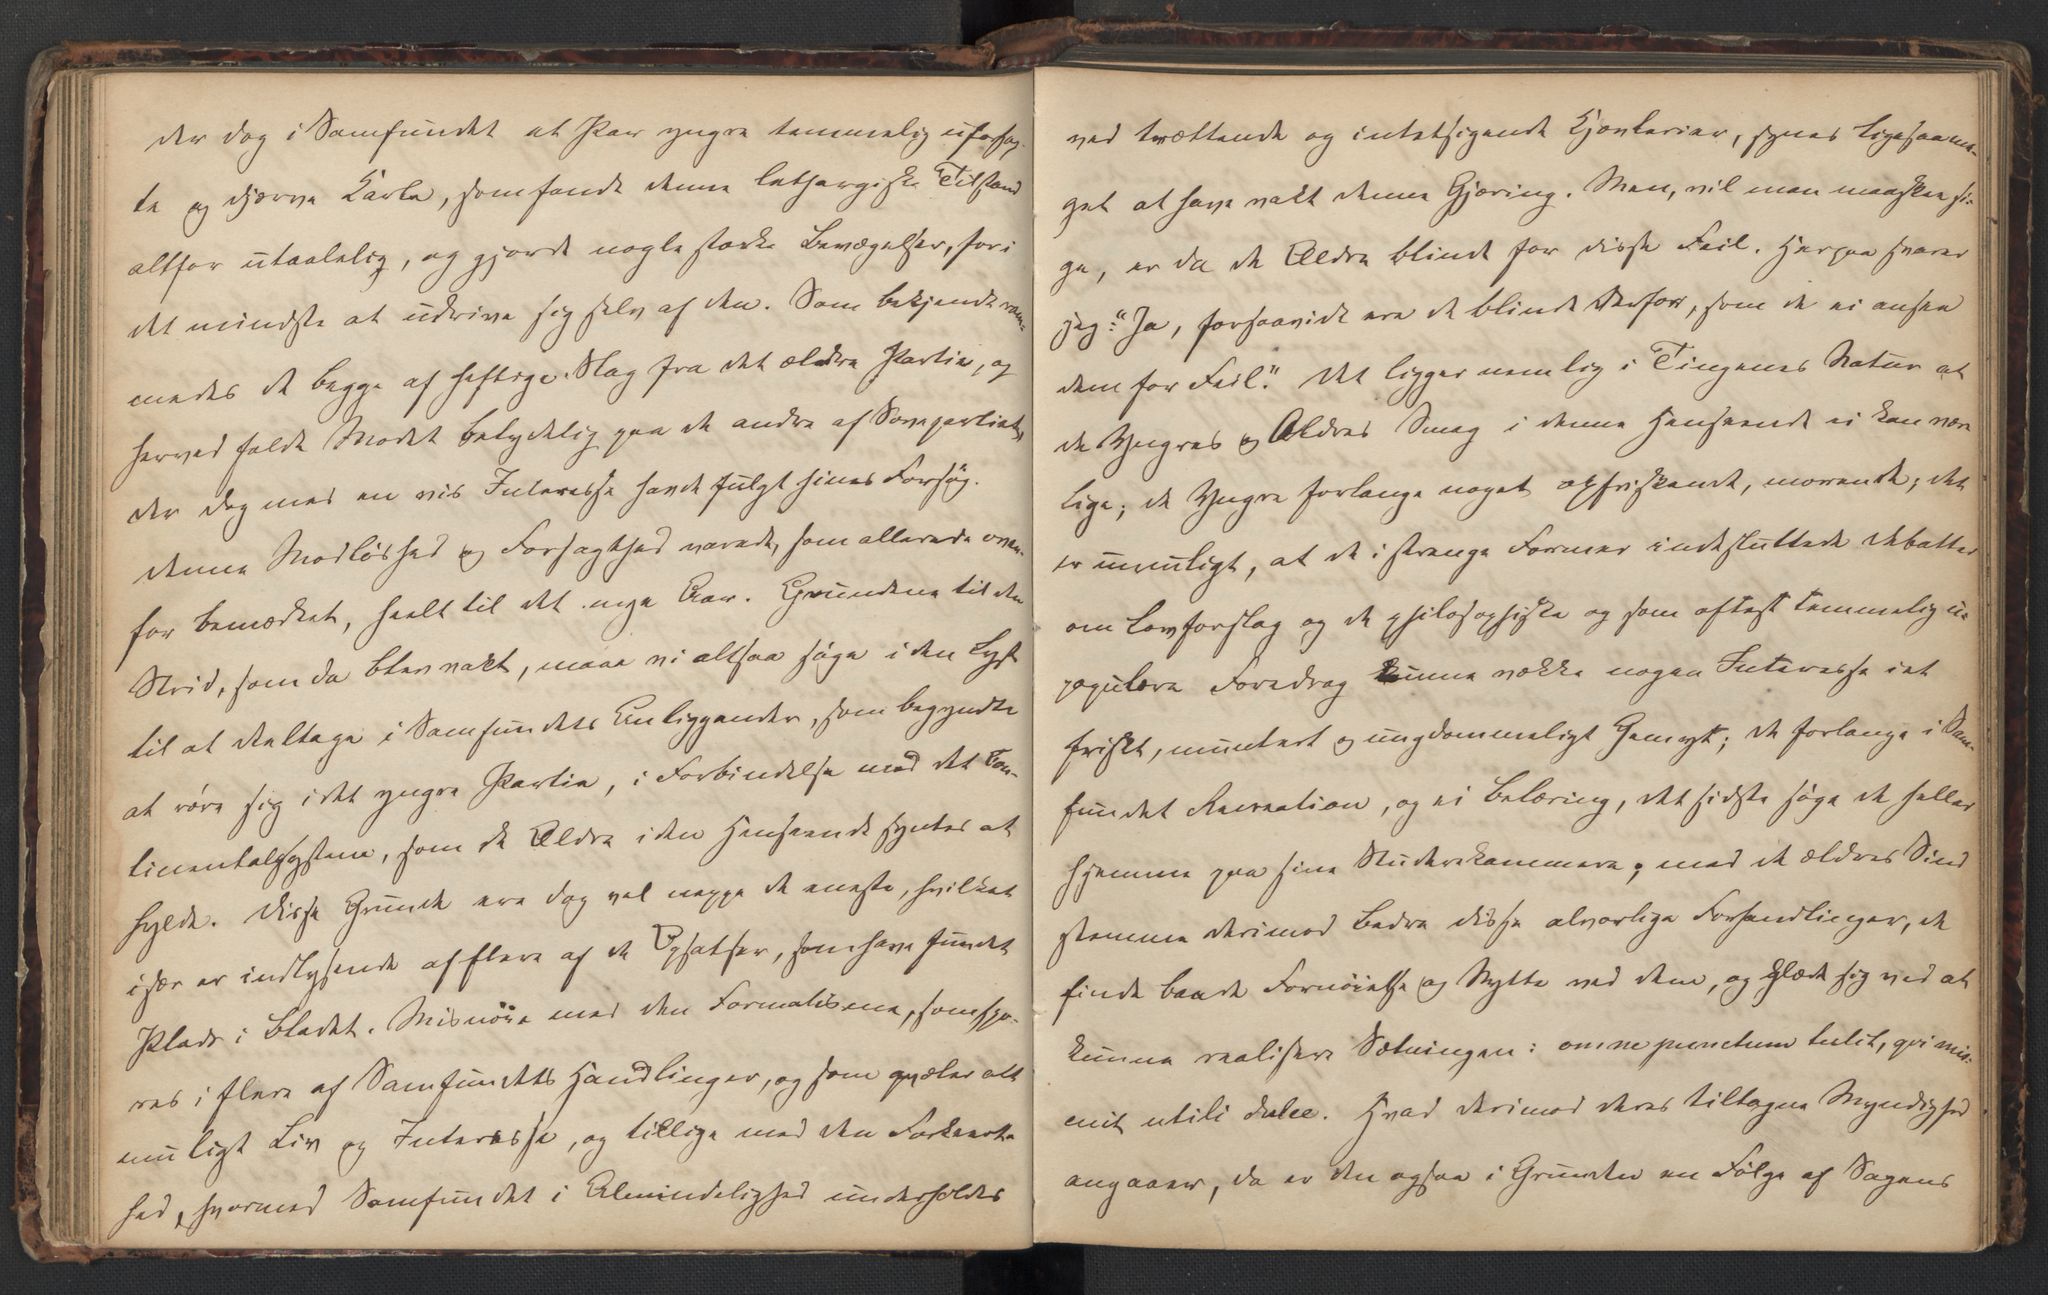 der dog i Samfundet et Par yngre temmelig uforsag-
te og djærve Karle, som fandt denne lethargiske Tilstand
altfor utaalelig, og gjorde nogle stærke Bevægelser, for i
det mindste at uddrive sig selv af den. Som bekjendt ram-
medes de begge af heftige Slag fra det ældre Partie, og
herved faldt Modet betydelig paa de andre af Sovepartiet,
der dog med en vis Interesse havde fulgt hines Forsög.
Denne Modlöshed og Forsagthed varede, som allerede oven-
for bemærket, heelt til det nye Aar. Grundene til den
Strid, som da blev vakt, maae vi altsaa söge i den Lyst
til at deeltage i Samfundets Anliggender, som begyndte
at röre sig i det yngre Partie, i Forbindelse med det Con-
tinentalsystem, som de Ældre i den Henseende syntes at
hylde. Disse Grunde ere dog vel neppe de eneste, hvilket
især er indlysende af flere af de Opsatser, som have fundet
Plads i Bladet. Misnöie med den Formalisme, som spo-
res i flere af Samfundets Handlinger, og som qvæler alt
muligt Liv og Interesse, og tillige med den Forkeert-
hed, hvormed Samfundet i Almindelighed underholdes
ved trættende og intetsigende Kjævlerier, synes ligesaame-
get at have vakt denne Gjæring. Men, vil man maaskee si-
ge, er da de Ældre blinde for disse Feil. Herpaa svarer
jeg: "Ja, forsaavidt ere de blinde derfor, som de ei ansee
dem for Feil." Det ligger nemlig i Tingenes Natur at
de Yngres og Ældres Smag i denne Henseende ei kan være
lige; de Yngre forlange noget opfriskende, morende; det
er umuligt, at de i strenge Former indesluttede Debatter
om Lovforslag og de philosophiske og som oftest temmelig u-
populære Foredrag kunne vække nogen Interesse i et
friskt, muntert og ungdommeligt Gemyt; de forlange i Sam-
fundet Recreation, og ei Belæring, det sidste söge de heller
hjemme paa sine Studerekammere; med de ældres Sind
stemme derimod bedre disse alvorlige Forhandlinger, de
finde baade Fornöielse og Nytte ved dem, og glæde sig ved at
kunne realisere Sætningen: omne punctum tulit, qvi mis-
cuit utili dulce. Hvad derimod deres tiltagne Myndighed
angaaer, da er den ogsaa i Grunden en Fölge af Sagens